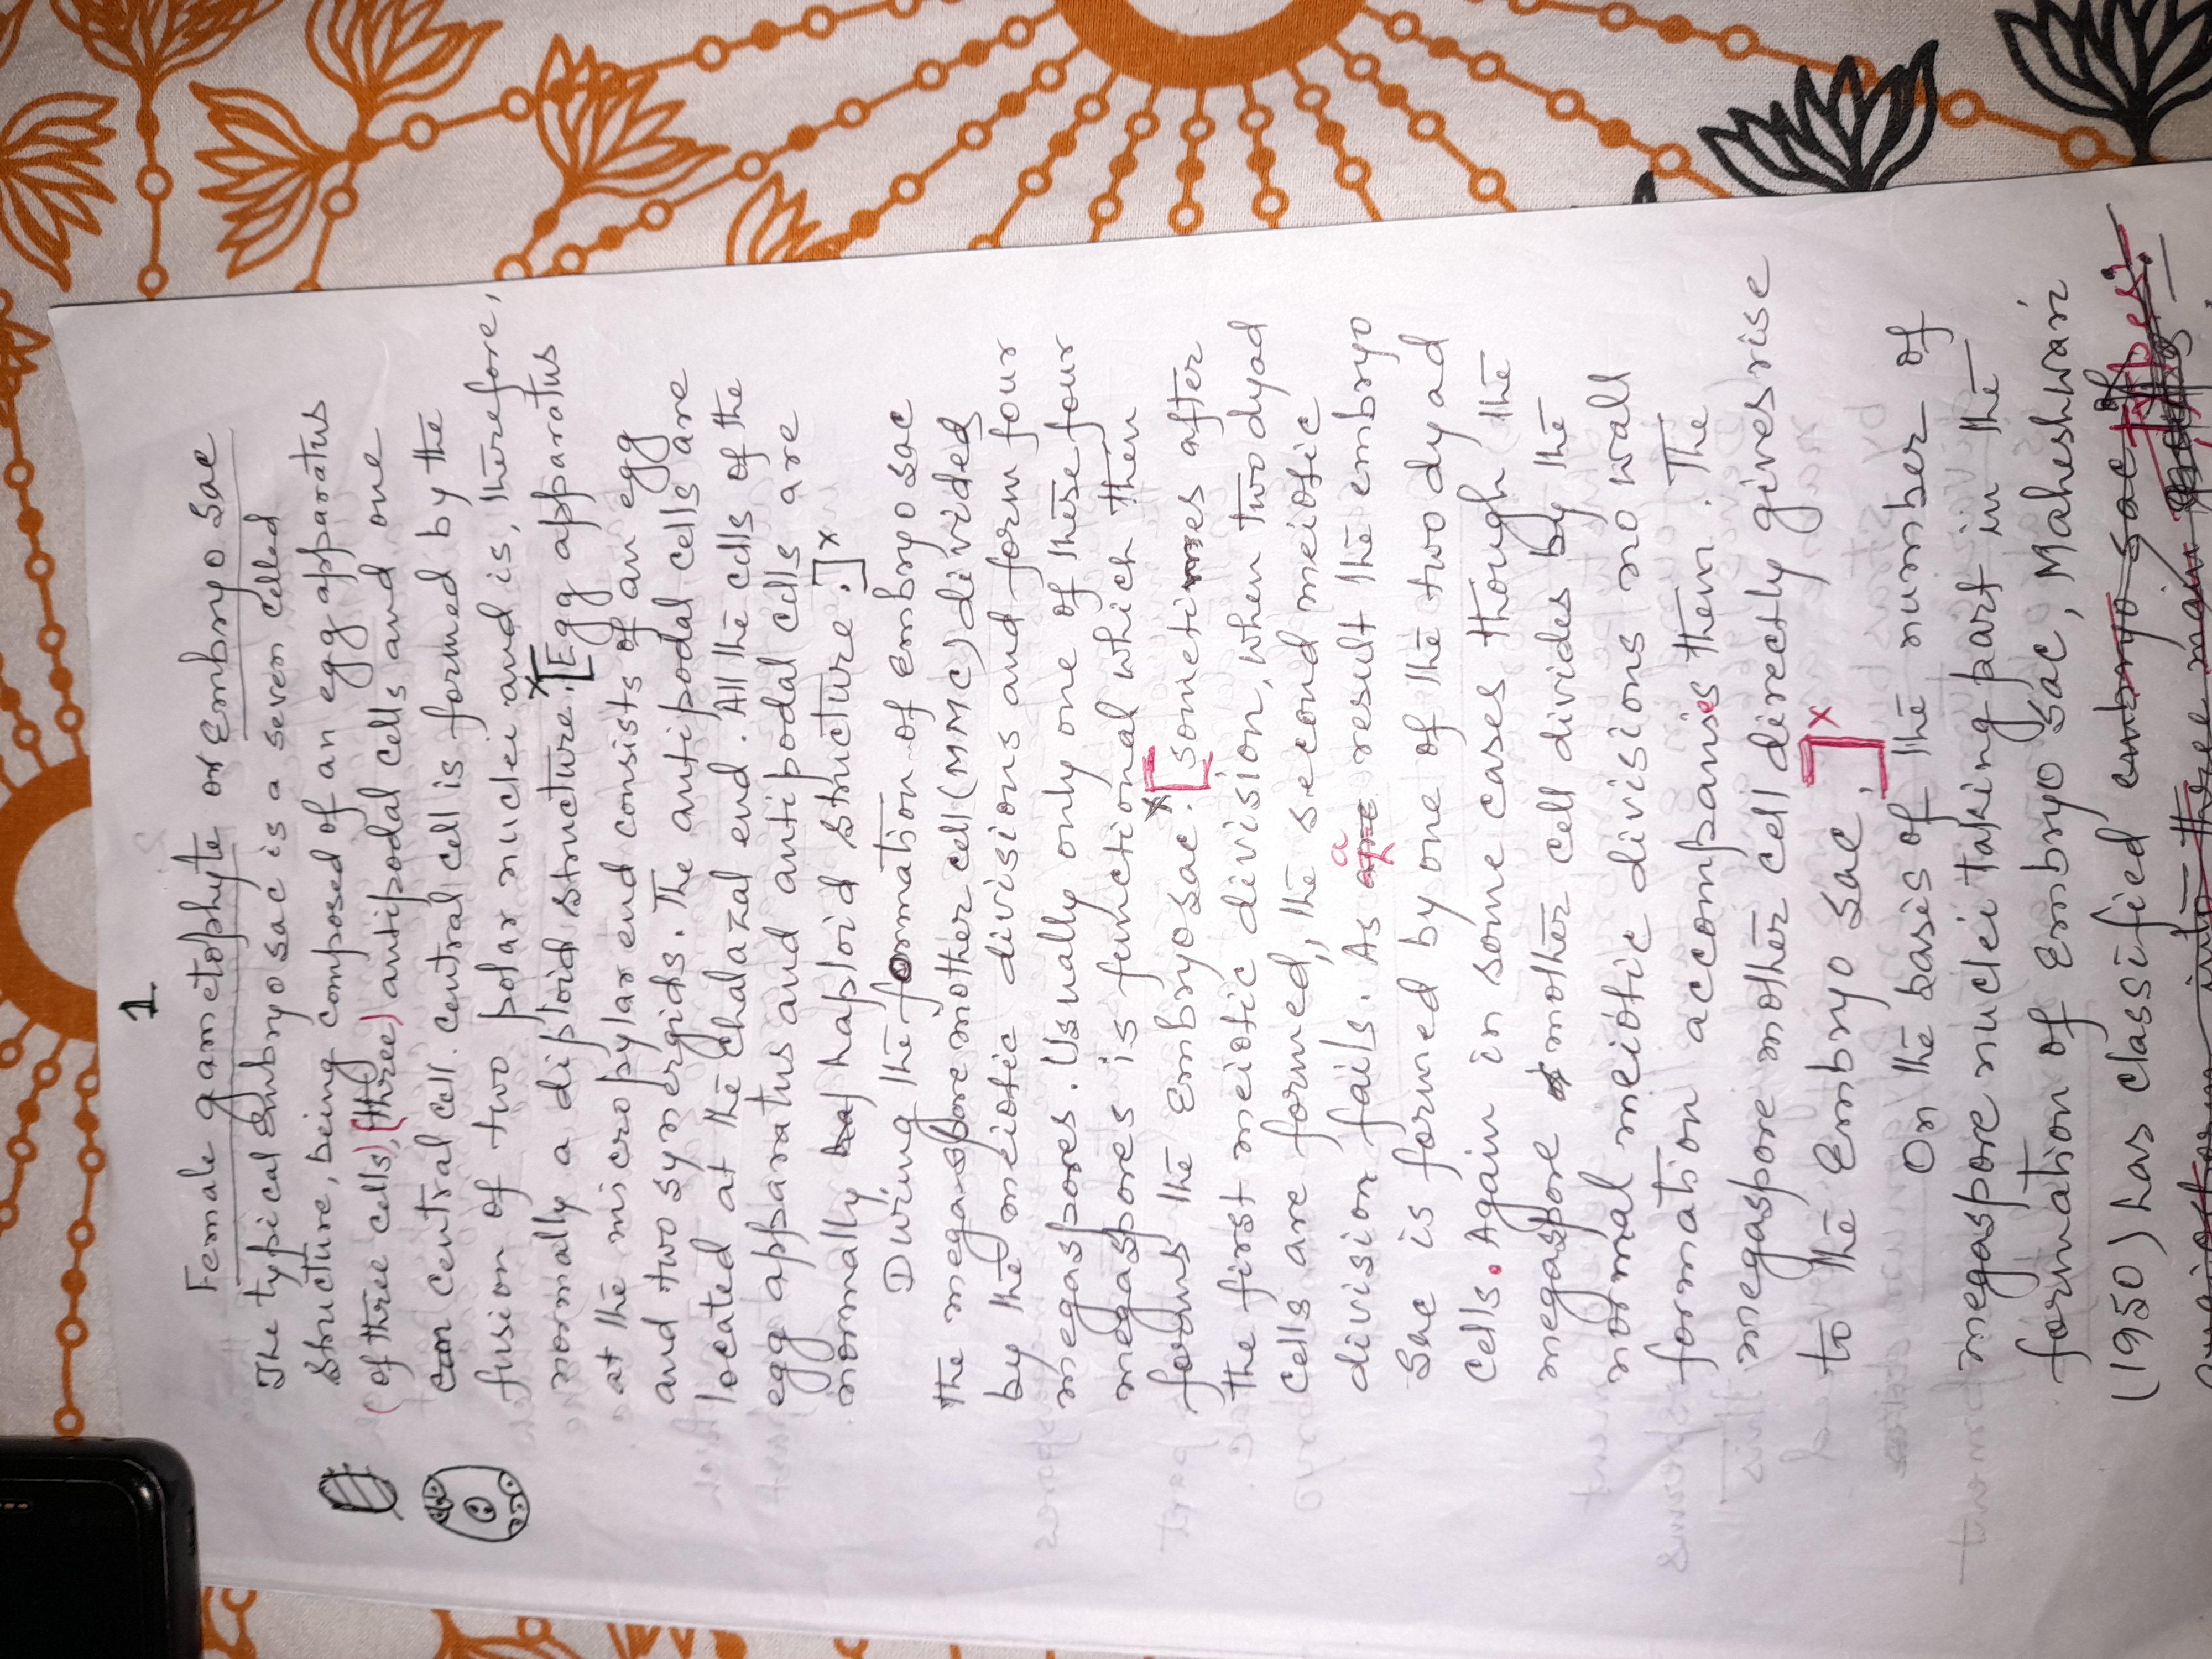 1
Female gametophyte or Embryo sac
The typical Embryo sac is a seven celled
structure, being composed of an egg apparatus
(of three cells), (three) antipodal cells and one
central cell. central cell is formed by the
fusion of two polar nuclei and is, therefore,
normally a diploid structure. x[Egg apparatus
at the micropylar end consists of an egg
and two synergids. The antipodal cells are
located at the chalazal end. All the cells of the
egg apparatus and antipodal cells are
normally haploid structure.]x
During the formation of embryo sac
the megaspore mother cell (MMC) divided
by the meiotic divisions and form four
megaspores. Usually only one of these four
megaspores is functional which then
forms the Embryo sac. x[sometimes after
the first meiotic division, when two dyad
cells are formed, the second meiotic
division fails. As a result the embryo
sac is formed by one of the two dyad
cells. Again in some cases though the
megaspore mother cell divides by the
normal meiotic divisions no wall
formation accompanies them. The
megaspore mother cell directly gives rise
to the Embryo sac.]x
On the basis of the number of
megaspore nuclei taking part in the
formation of Embryo sac, Maheshwari
(1950) has classified embryo sac of
into three main types.